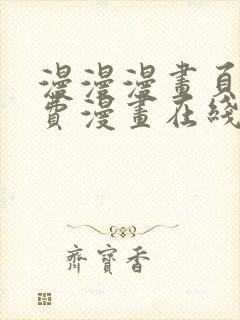 漫漫漫畫頁
費漫畫在綫
齊寶香